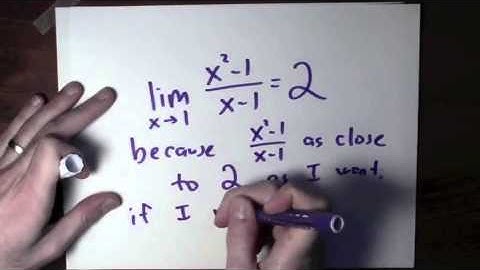 lim x→1 x²-1/x-1 = 2
because x²-1/x-1 as close
to 2 as I want.
if I